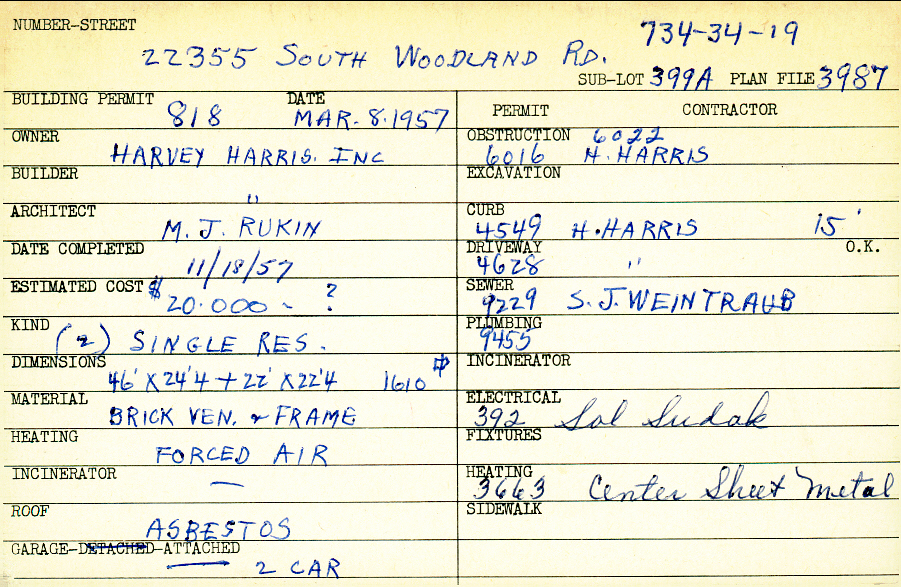 NUMBER-STREET
22355 SOUTH WOODLAND RD. 734-34-19
SUB-LOT 399A PLAN FILE 3987
BUILDING PERMIT 818 DATE MAR. 8. 1957
OWNER HARVEY HARRIS. INC
BUILDER "
ARCHITECT M. J. RUKIN
DATE COMPLETED 11/18/57
ESTIMATED COST $ 20.000 ~ ?
KIND (2) SINGLE RES.
DIMENSIONS 46' X 24'4 + 22' X 22'4 1610
MATERIAL BRICK VEN. & FRAME
HEATING FORCED AIR
INCINERATOR —
ROOF ASBESTOS
GARAGE-DETACHED-ATTACHED 2 CAR
PERMIT CONTRACTOR
OBSTRUCTION 6022
6016 H. HARRIS
EXCAVATION
CURB 4549 H. HARRIS 15'
DRIVEWAY 4628 " O.K.
SEWER 9229 S. J. WEINTRAUB
PLUMBING 9455
INCINERATOR
ELECTRICAL 392 Sol Sudak
FIXTURES
HEATING 3663 Center Sheet Metal
SIDEWALK